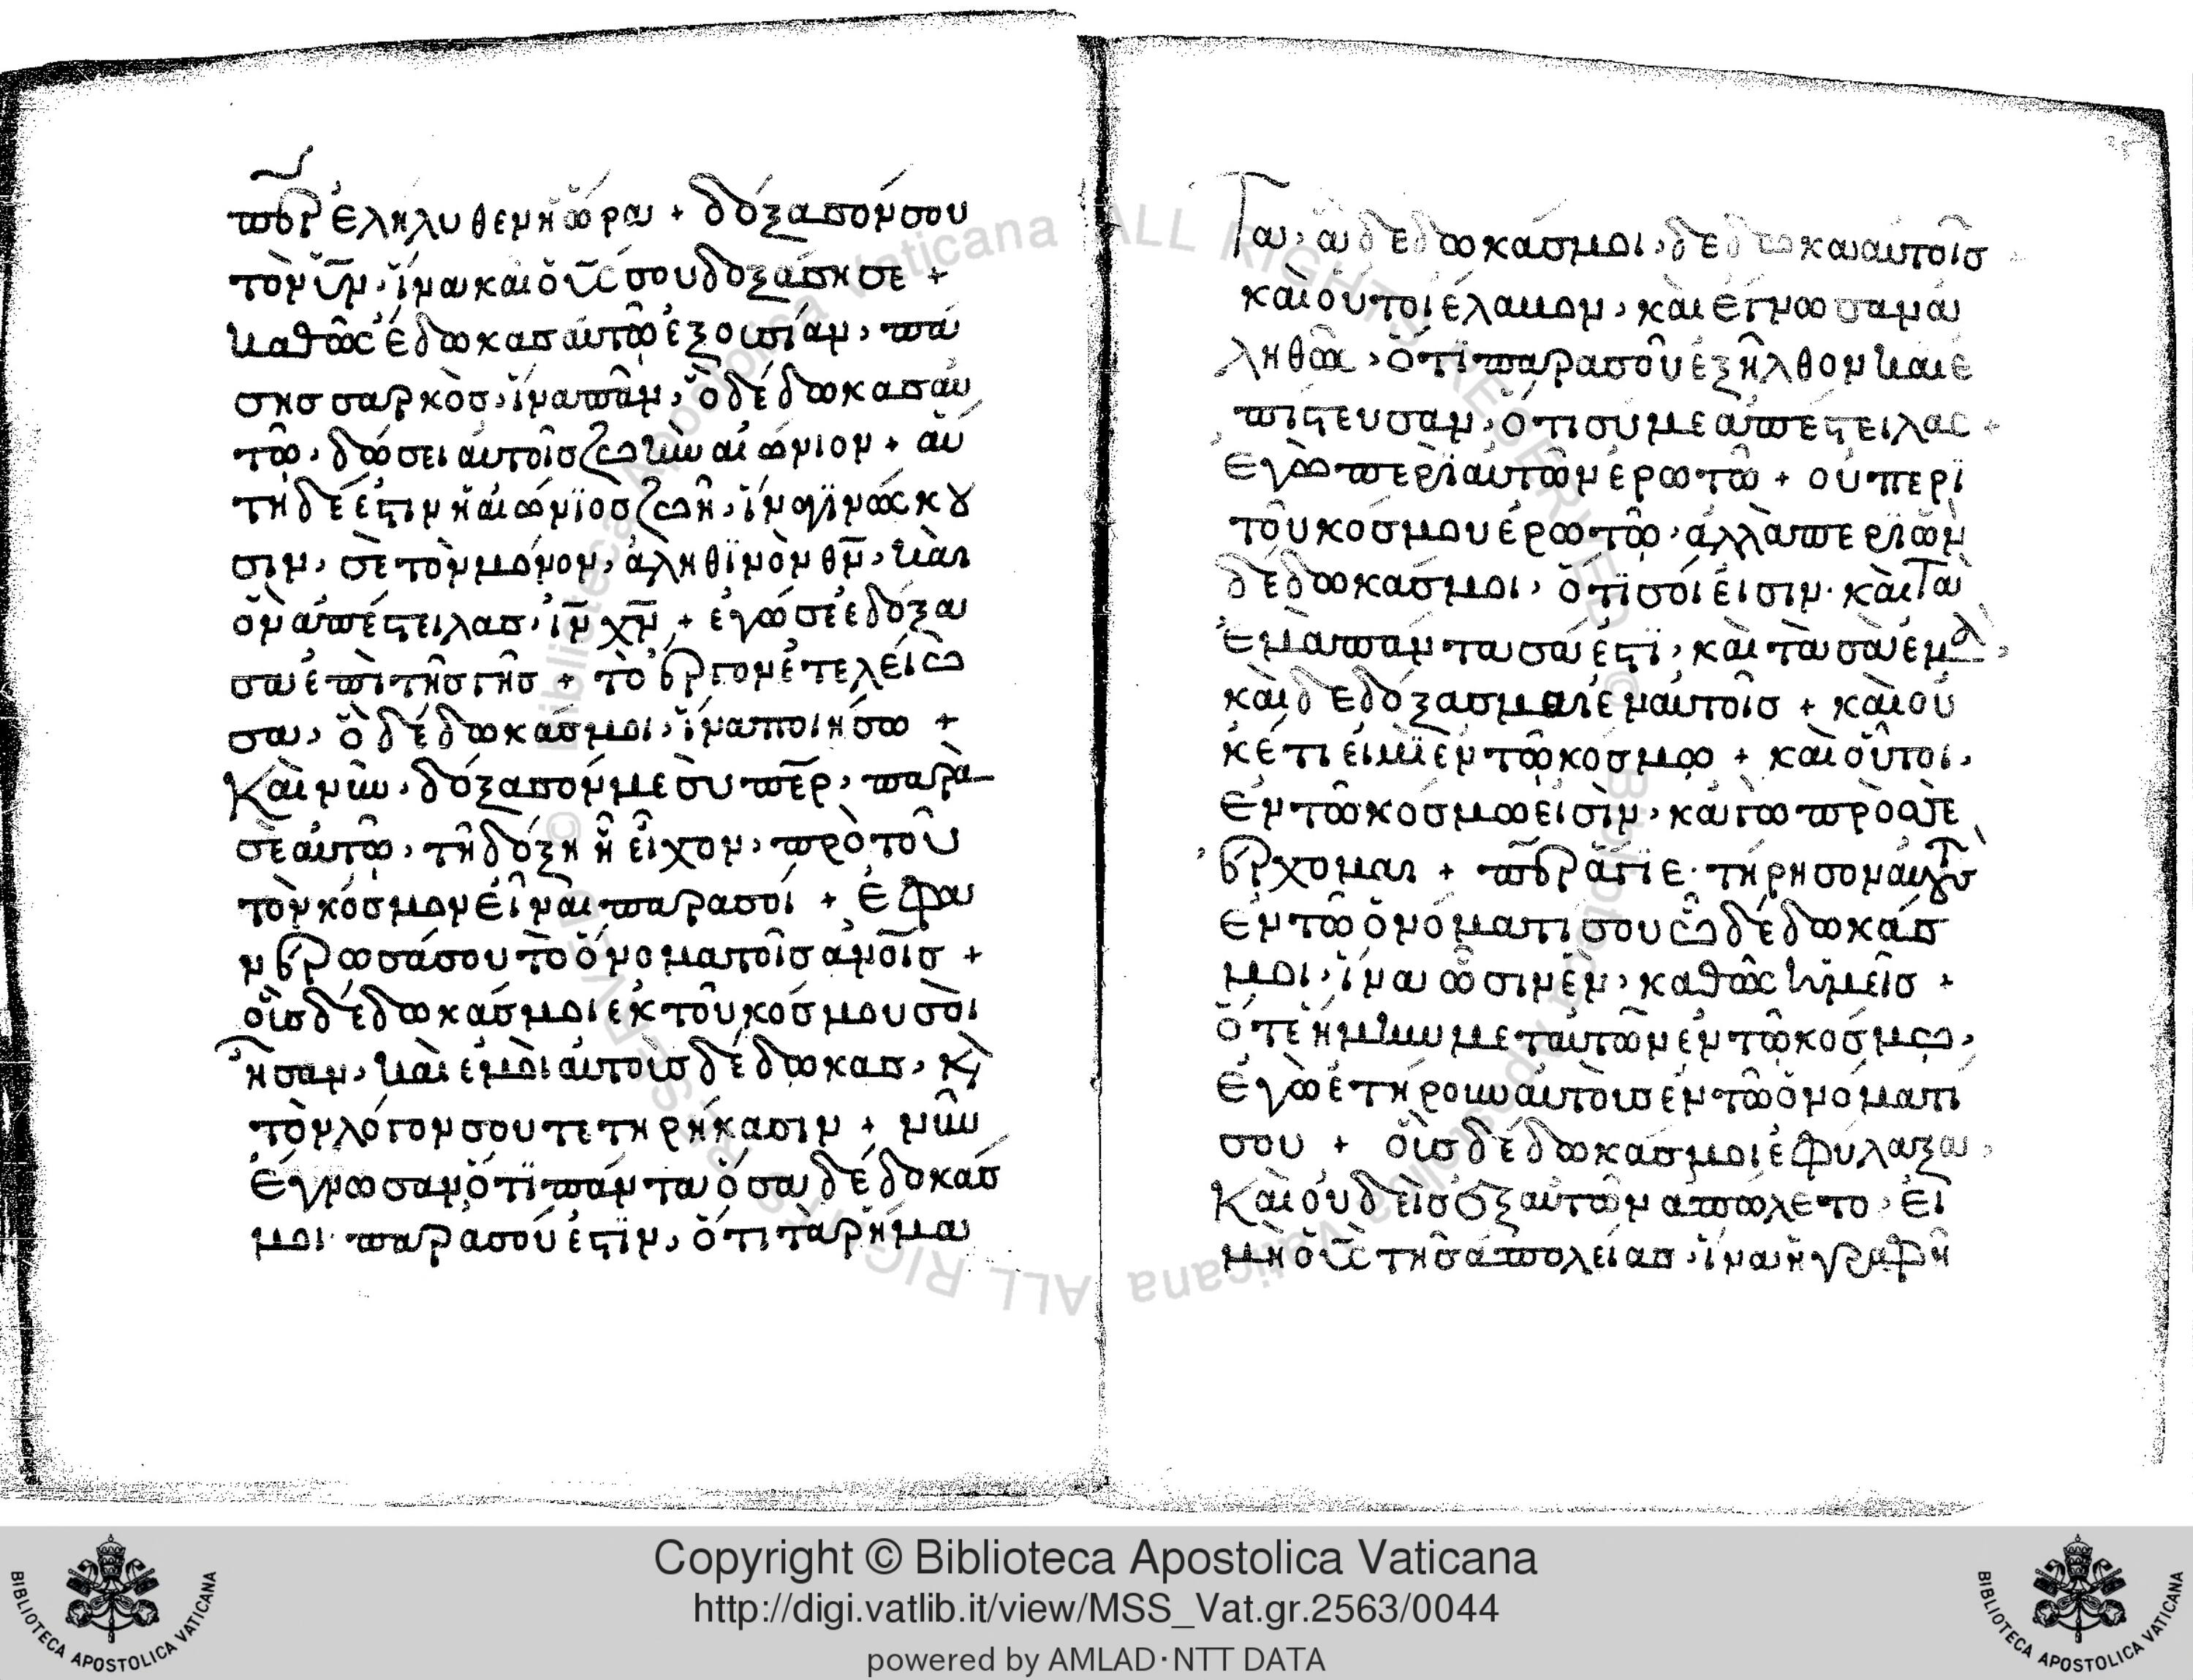 περ ἐλήλυθεν ἡ ὥρα + δόξασόν σου
τὸν ῡν, ἵνα καὶ ὁ ῡς σου δοξάσῃ σε +
καθὼς ἔδωκας αὐτῷ ἐξουσίαν, πά
σης σαρκὸς, ἵνα πᾶν, ὃ δέδωκας αὐ
τῷ, δώσει αὐτοῖς ζωὴν αἰώνιον + αὕ
τη δέ ἐστιν ἡ αἰώνϊος ζωὴ, ἵνα γϊνώσκου
σιν, σὲ τὸν μόνον, ἀληθϊνὸν θν̄, καὶ
ὃν ἀπέστειλας, ῑν χν̄ + ἐγώ σε ἐδόξα
σα ἐπὶ τῆς γῆς + τὸ ἔργον ἐτελείω
σα, ὃ δέδωκάς μοι, ἵνα ποιήσω +
Καὶ νῦν, δόξασόν με σὺ πε̄ρ, παρὰ
σεαυτῷ, τῇ δόξῃ ἣ εἶχον, πρὸ τοῦ
τὸν κόσμον εἶναι παρὰ σοί + ἐφα
νέρωσά σου τὸ ὄνομα τοῖς ἀν̄οις +
οἷς δέδωκάς μοι ἐκ τοῦ κόσμου σοὶ
ἦσαν, καὶ ἐμοὶ αὐτοὺς δέδωκας, κ̀
τὸν λόγον σου τετηρήκασιν + νῦν
ἔγνωσαν ὅτϊ πάντα ὅσα δέδοκάς
μοι παρὰ σοῦ ἐστϊν, ὅτι τὰ ρήμα
Τα, ἃ δέδωκάς μοι, δέδωκα αὐτοῖς
καὶ οὗτοι ἔλαβον, καὶ ἔγνωσαν ἀ
ληθῶς, ὅτϊ παρὰ σοῦ ἐξῆλθον καὶ ἐ
πίστευσαν, ὅτι σύ με ἀπέστειλας +
Ἐγὼ περὶ αὐτῶν ἐρωτῶ + οὐ περὶ
τοῦ κόσμου ἐρωτῶ, ἀλλὰ περὶ ὧν
δέδωκάς μοι, ὅτϊ σοί εἰσιν. καὶ Τὰ
ἐμὰ πάντα σά ἐστϊ, καὶ τὰ σὰ ἐμὰ,
καὶ δεδόξασμαι ἐν αὐτοῖς + καὶ οὐ
κέτι εἰμὶ ἐν τῷ κόσμῳ + καὶ οὗτοι,
ἐν τῷ κόσμῳ εἰσὶν, κἀγὼ πρὸς σὲ
ἔρχομαι + πε̄ρ ἅγιε. τήρησον αὐτοὺς
ἐν τῷ ὀνόματι σου ᾧ δέδωκάς
μοι, ἵνα ὦσιν ἓν, καθὼς ἡμεῖς +
ὅτε ἤμην μετ αὐτῶν ἐν τῷ κόσμω,
ἐγὼ ἐτήρουν αὐτοὺς ἐν τῷ ὀνόματι
σου + οὓς δέδωκάς μοι ἐφύλαξα,
Καὶ οὐδεὶς ἐξ αὐτῶν ἀπώλετο, εἰ
μὴ ὁ ῡς τῆς ἀπολείας, ἵνα ἡ γραφὴ
Copyright © Biblioteca Apostolica Vaticana
http://digi.vatlib.it/view/MSS_Vat.gr.2563/0044
powered by AMLAD·NTT DATA
BIBLIOTECA APOSTOLICA VATICANA
BIBLIOTECA APOSTOLICA VATICANA